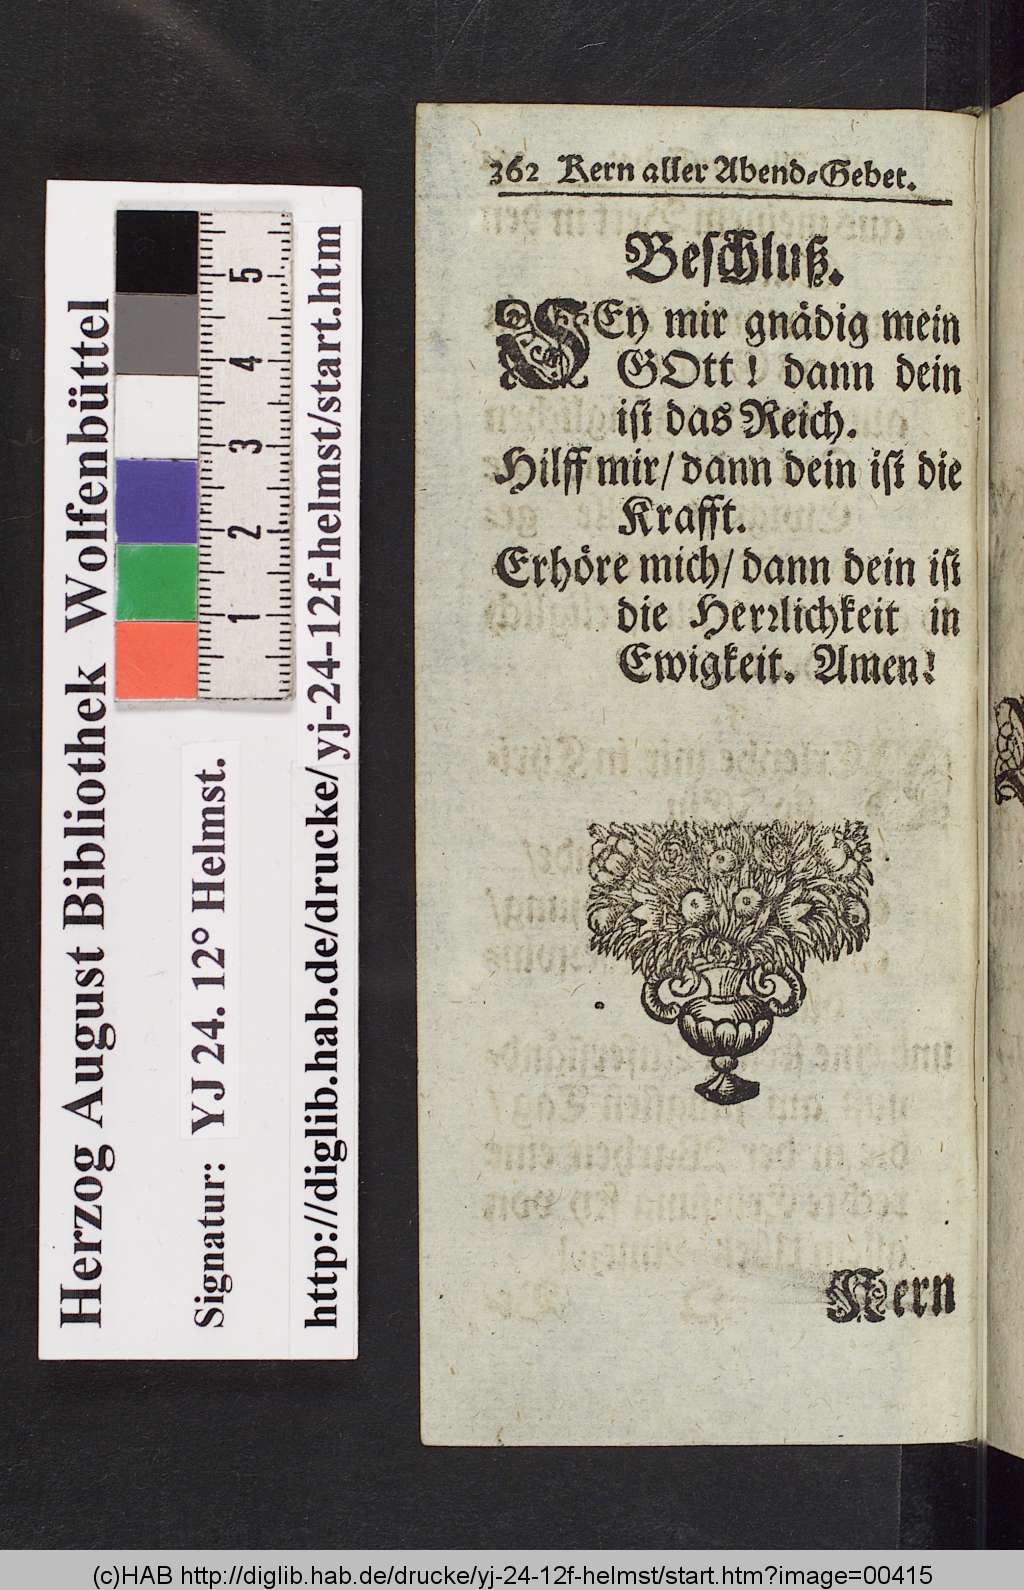 362 Kern aller Abend-Gebet.
Beschluß.
SEy mir gnädig mein
GOtt! dann dein
ist das Reich.
Hilff mir/ dann dein ist die
Krafft.
Erhöre mich/ dann dein ist
die Herrlichkeit in
Ewigkeit. Amen!
Kern
Herzog August Bibliothek Wolfenbüttel
Signatur: YJ 24. 12° Helmst.
http://diglib.hab.de/drucke/yj-24-12f-helmst/start.htm
5
4
3
2
1
(c)HAB http://diglib.hab.de/drucke/yj-24-12f-helmst/start.htm?image=00415